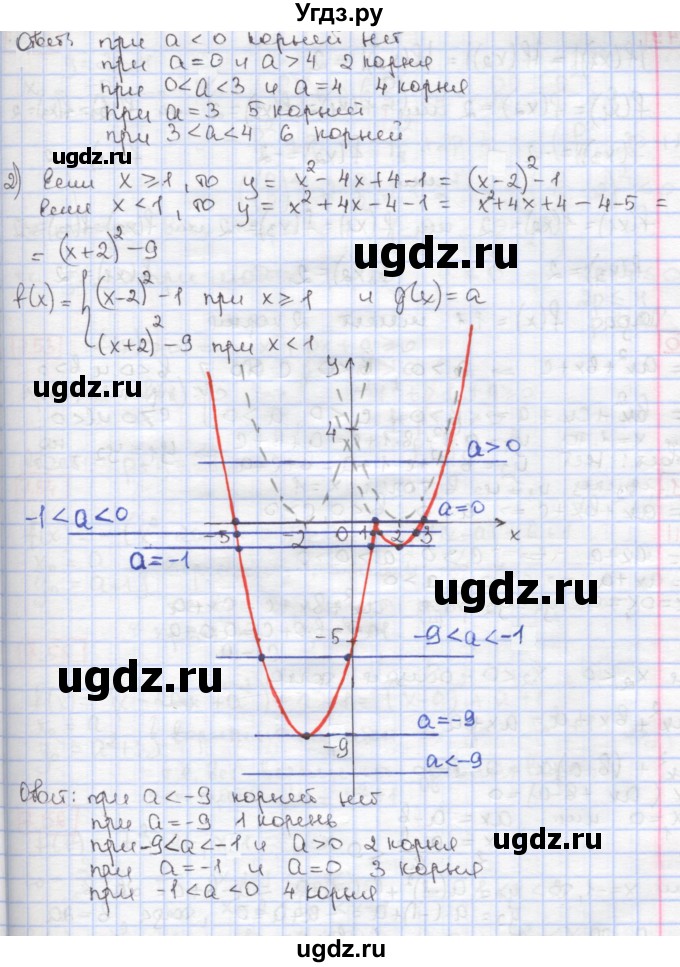 Угдз.ру
Ответ: при a < 0 корней нет
при a = 0 и a > 4 2 корня
при 0 < a < 3 и a = 4 4 корня
при a = 3 5 корней
при 3 < a < 4 6 корней
ugdz.ru
ugdz.ru
2) Если x ≥ 1, то y = x² - 4x + 4 - 1 = (x-2)² - 1
Если x < 1, то y = x² + 4x - 4 - 1 = x² + 4x + 4 - 4 - 5 =
= (x+2)² - 9
f(x) = { (x-2)² - 1 при x ≥ 1 и g(x) = a
(x+2)² - 9 при x < 1
ugdz.ru
ugdz.ru
y
4
a > 0
-1 < a < 0
a = 0
-5 -2 0 1 2 3 x
a = -1
ugdz.ru
-5
-9 < a < -1
ugdz.ru
ugdz.ru
a = -9
-9
a < -9
Ответ: при a < -9 корней нет
при a = -9 1 корень
при -9 < a < -1 и a > 0 2 корня
при a = -1 и a = 0 3 корня
при -1 < a < 0 4 корня
ugdz.ru
ugdz.ru
ugdz.ru